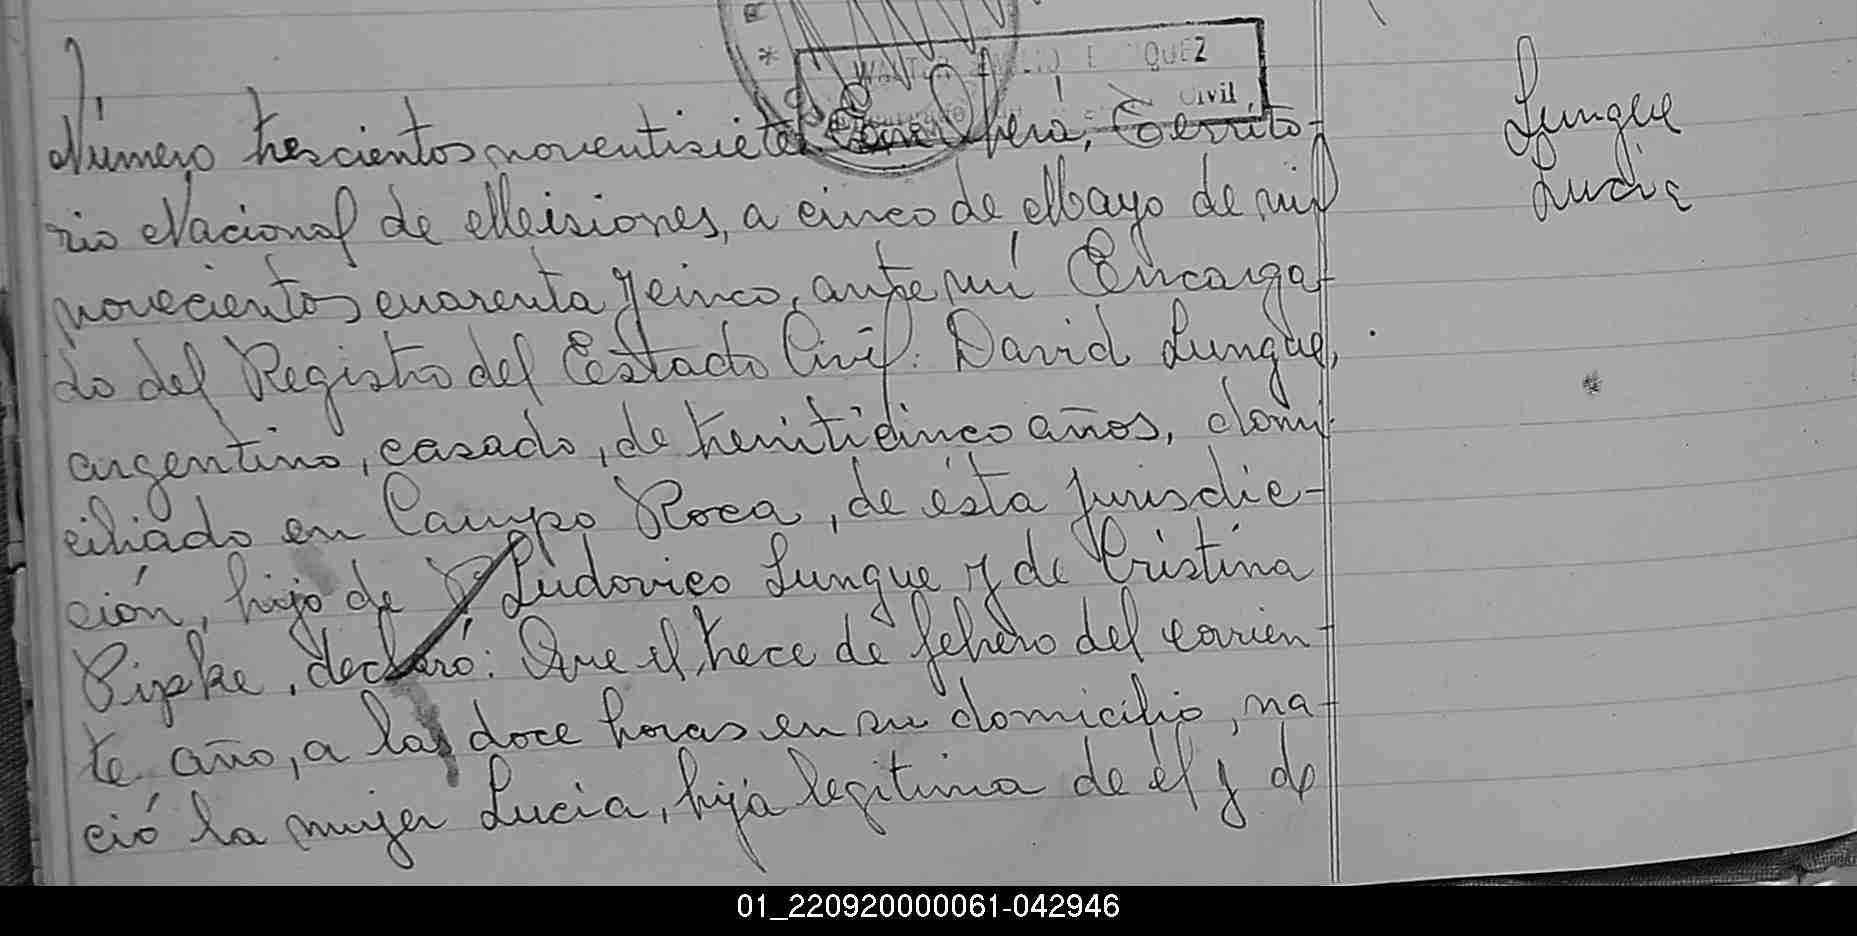 Número trescientos noventisiete. En Oberá, Territo-
rio Nacional de Misiones, a cinco de Mayo de mil
novecientos cuarenta y cinco, ante mí Encarga-
do del Registro del Estado Civil: David Lungue,
argentino, casado, de treinticinco años, domi-
ciliado en Campo Roca, de ésta jurisdic-
ción, hijo de Ludovico Lungue y de Cristina
Pipke, declaró: Que el trece de febrero del corrien-
te año, a las doce horas en su domicilio, na-
ció la mujer Lucia, hija legitima de el y de
Lungue
Lucia
QUEZ
Civil
01_220920000061-042946